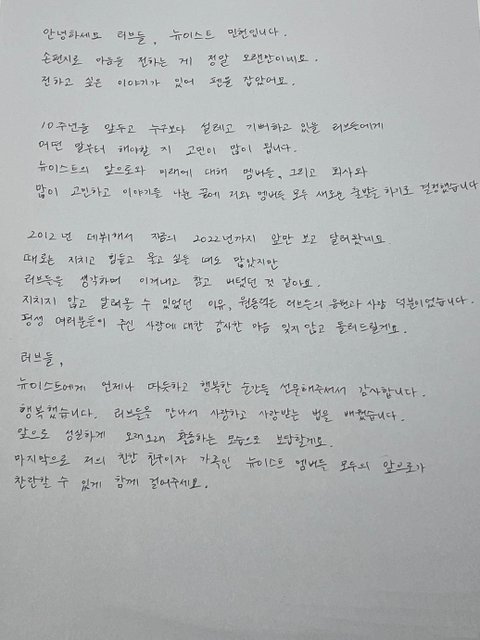 안녕하세요 러브들, 뉴이스트 민현입니다.
손편지로 마음을 전하는 게 정말 오랜만이네요.
전하고 싶은 이야기가 있어 펜을 잡았어요.
10주년을 앞두고 누구보다 설레고 기뻐하고 있을 러브들에게
어떤 말부터 해야할 지 고민이 많이 됩니다.
뉴이스트의 앞으로와 미래에 대해 멤버들, 그리고 회사와
많이 고민하고 이야기를 나눈 끝에 저와 멤버들 모두 새로운 출발을 하기로 결정했습니다
2012년 데뷔해서 지금의 2022년까지 앞만 보고 달려왔네요
때로는 지치고 힘들고 울고 싶을 때도 많았지만
러브들을 생각하며 이겨내고 참고 버텼던 것 같아요.
지치지 않고 달려올 수 있었던 이유, 원동력은 러브들의 응원과 사랑 덕분이었습니다.
평생 여러분들이 주신 사랑에 대한 감사한 마음 잊지않고 돌려드릴게요.
러브들,
뉴이스트에게 언제나 따듯하고 행복한 순간들을 선물해주셔서 감사합니다.
행복했습니다. 러브들을 만나서 사랑하고 사랑받는 법을 배웠습니다.
앞으로 성실하게 오래오래 활동하는 모습으로 보답할게요.
마지막으로 저의 친한 친구이자 가족인 뉴이스트 멤버들 모두의 앞으로가
찬란할 수 있게 함께 걸어주세요.